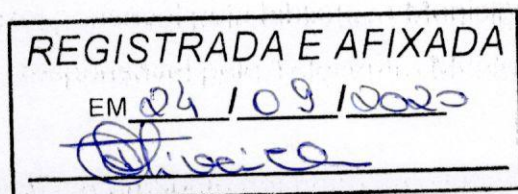 REGISTRADA E AFIXADA
EM 24 / 09 / 2020